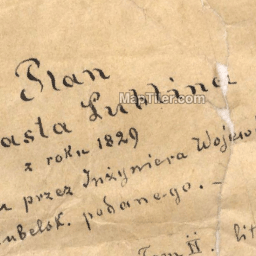 Plan
asta Lublina
z roku 1829
u przez Inżyniera Wojew
ubelsk. podane-go. –
Tom II. lit
MapTiler.com